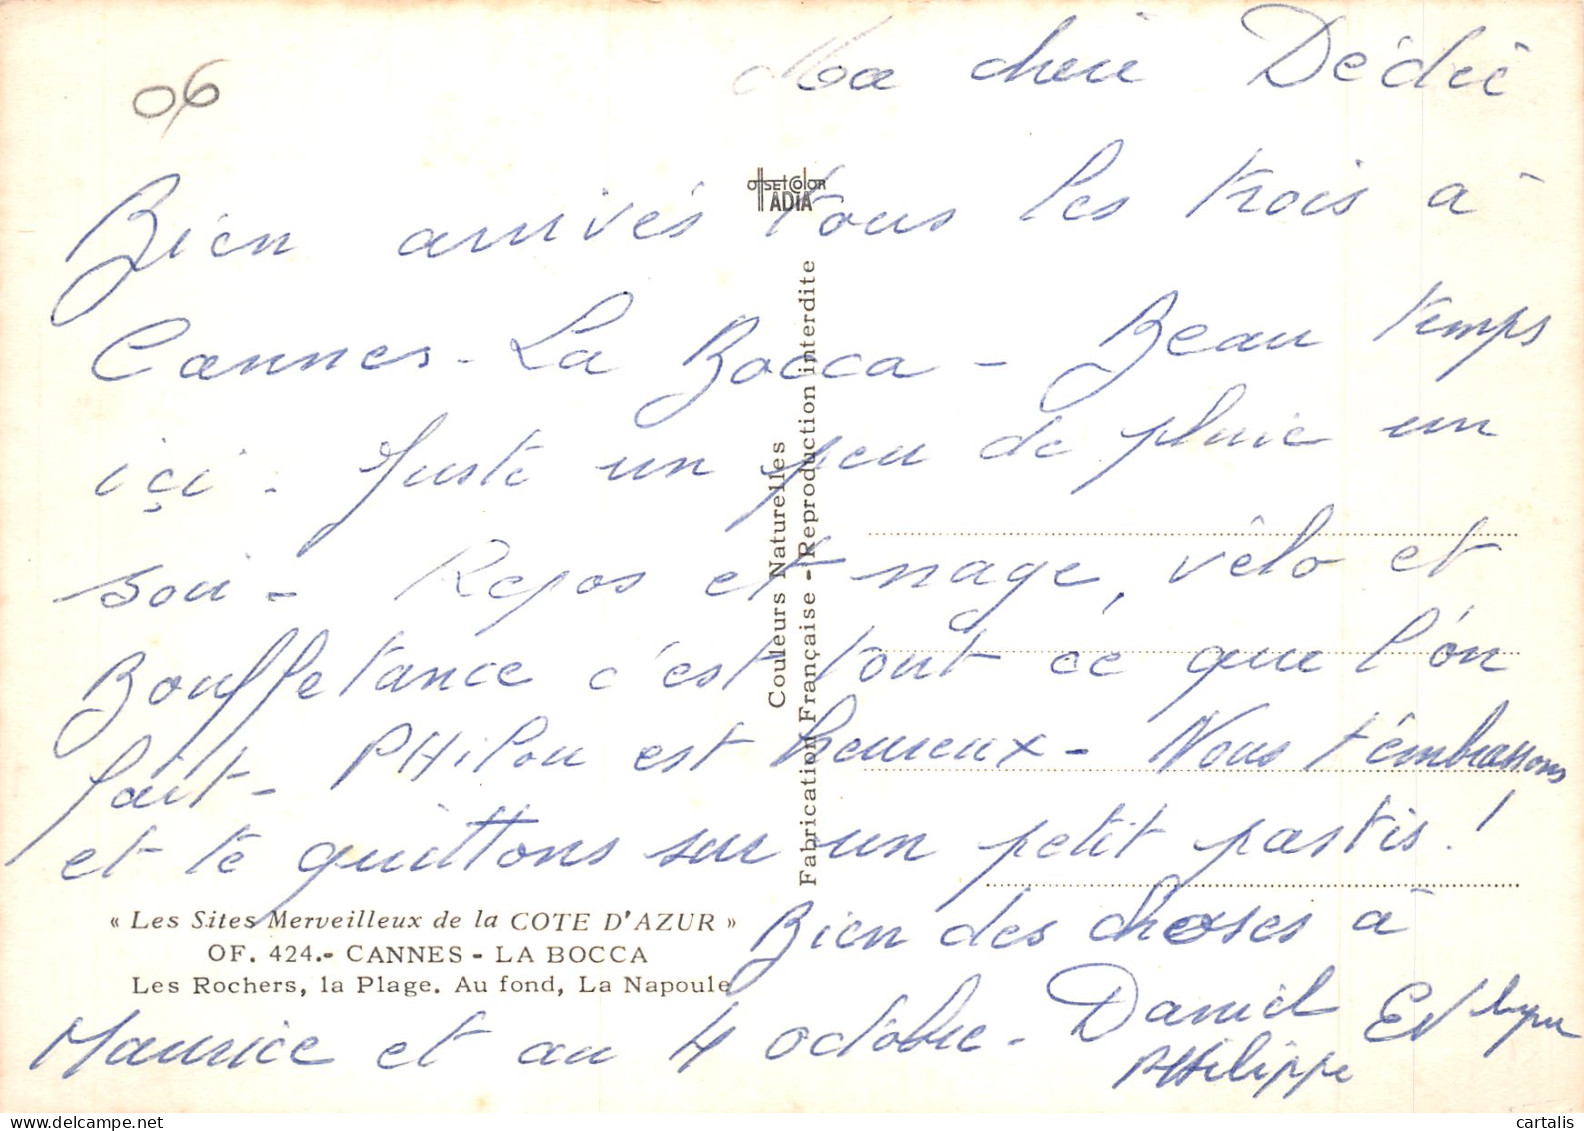 06
Ma chère Dédée
OffsetColor
ADIA
Bien arrivés tous les trois à
Cannes - La Bocca - Beau temps
içi. Juste un peu de pluie un
soir - Repos et nage, vélo et
Bouffetance c'est tout ce que l'on
fait - PHilou est heureux - Nous t'embrassons
et te quittons sur un petit pastis !
Bien des choses à
Maurice et au 4 octobre - Daniel
PHilippe
Couleurs Naturelles
Fabrication Française - Reproduction interdite
« Les Sites Merveilleux de la COTE D'AZUR »
OF. 424.- CANNES - LA BOCCA
Les Rochers, la Plage. Au fond, La Napoule
cartalis